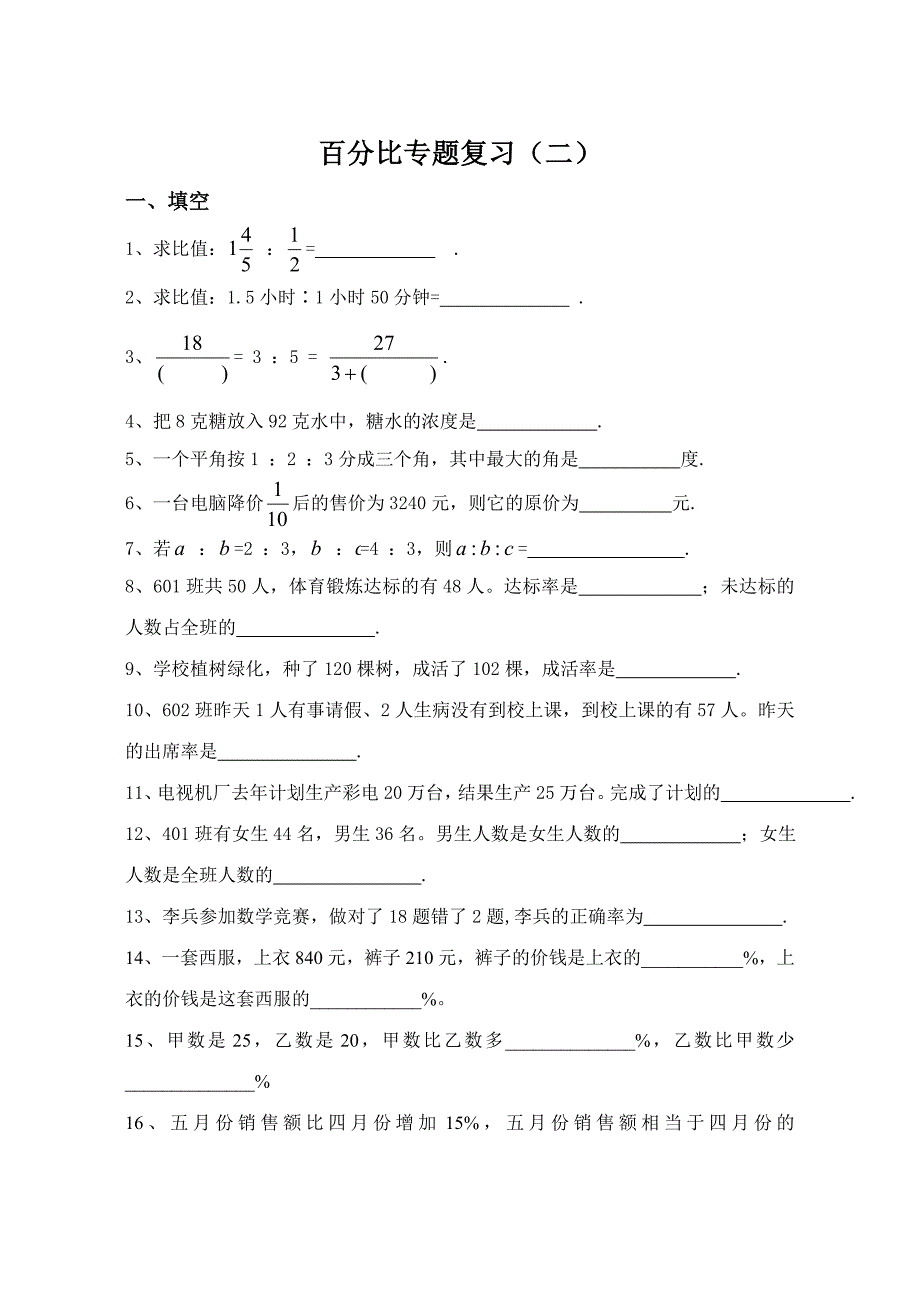 百分比专题复习（二）
一、填空
1、求比值：1 4/5 ：1/2=_____________ .
2、求比值：1.5小时∶1小时50分钟=______________ .
3、18/( ) = 3 ：5 = 27/(3+( )) .
4、把8克糖放入92克水中，糖水的浓度是_____________.
5、一个平角按1 ：2 ：3分成三个角，其中最大的角是___________度.
6、一台电脑降价1/10后的售价为3240元，则它的原价为__________元.
7、若a ：b=2 ：3，b ：c=4 ：3，则a:b:c=_________________.
8、601班共50人，体育锻炼达标的有48人。达标率是_____________；未达标的
人数占全班的_______________.
9、学校植树绿化，种了120棵树，成活了102棵，成活率是_____________.
10、602班昨天1人有事请假、2人生病没有到校上课，到校上课的有57人。昨天
的出席率是_______________.
11、电视机厂去年计划生产彩电20万台，结果生产25万台。完成了计划的______________.
12、401班有女生44名，男生36名。男生人数是女生人数的_____________；女生
人数是全班人数的________________.
13、李兵参加数学竞赛，做对了18题错了2题,李兵的正确率为_______________.
14、一套西服，上衣840元，裤子210元，裤子的价钱是上衣的___________%，上
衣的价钱是这套西服的____________%。
15、甲数是25，乙数是20，甲数比乙数多______________%，乙数比甲数少
______________%
16、五月份销售额比四月份增加15%，五月份销售额相当于四月份的